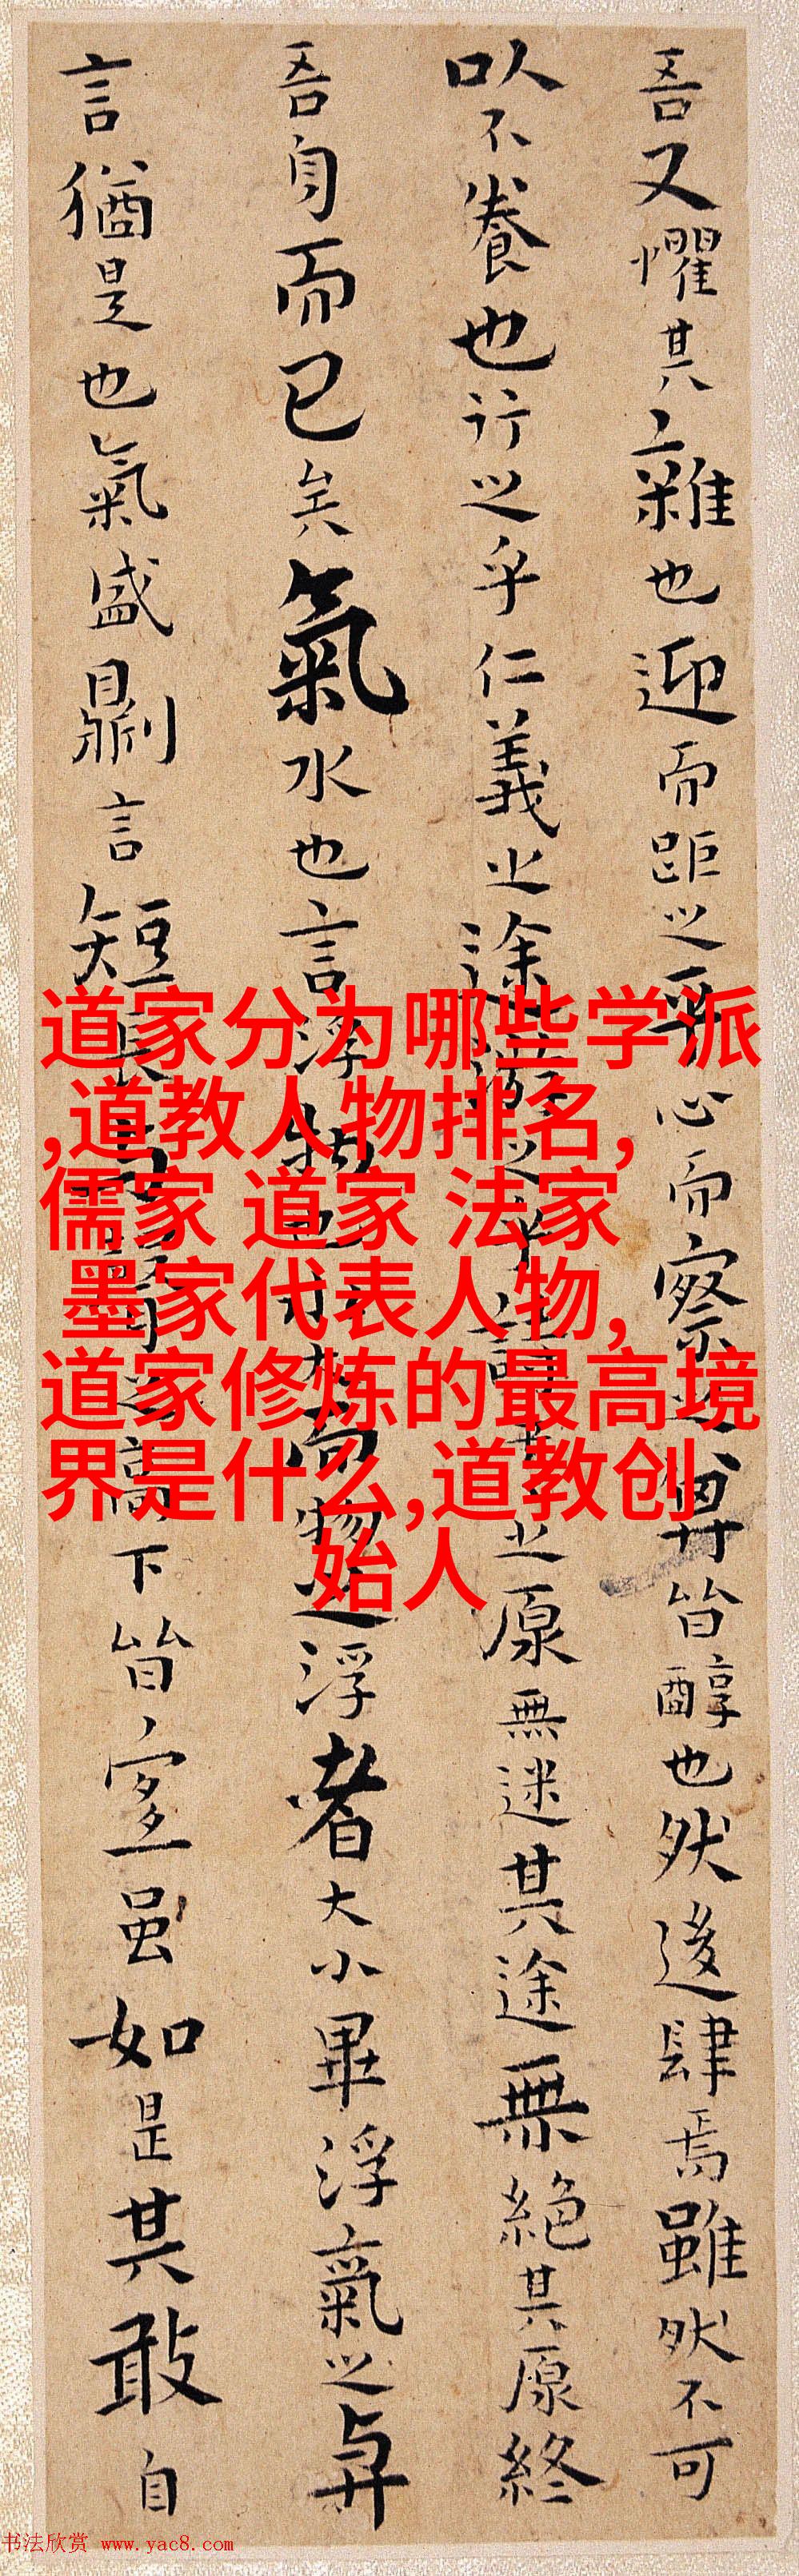 吾又懼其雜也迎而距之平心而察之其皆醇也然後肆焉雖然不可
以不養也行之乎仁義之途遊之乎詩書之原無迷其途無絕其原終
吾身而已矣氣水也言浮物也水大而物之浮者大小畢浮氣之與
言猶是也氣盛則言短長與聲之高下皆宜虽如是其敢自
道家分为哪些学派
,道教人物排名,
儒家 道家 法家
墨家代表人物,
道家修炼的最高境
界是什么,道教创
始人
书法欣赏 www.yac8.com